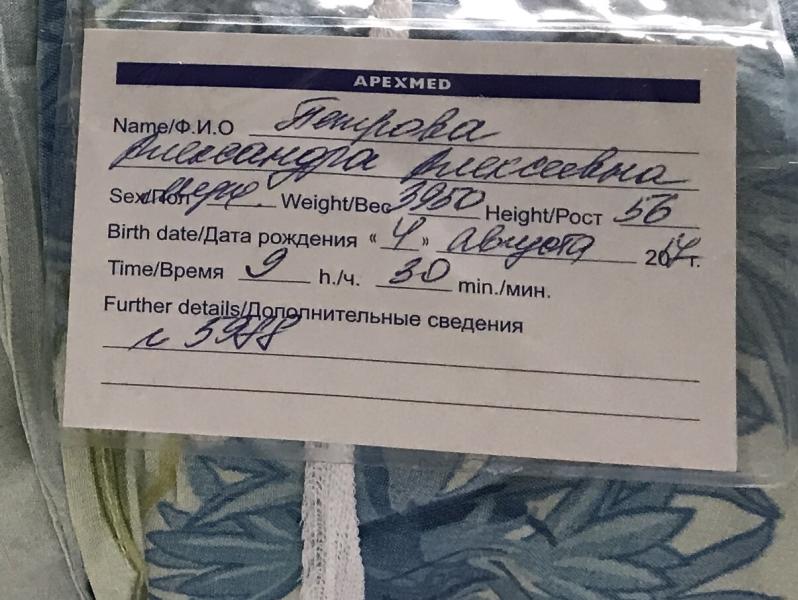 APEXMED
Name/Ф.И.О Петрова
Александра Алексеевна
Sex/Пол Weight/Вес 3950 Height/Рост 56
Birth date/Дата рождения « 4 » августа 2017г.
Time/Время 9 h./ч. 30 min./мин.
Further details/Дополнительные сведения